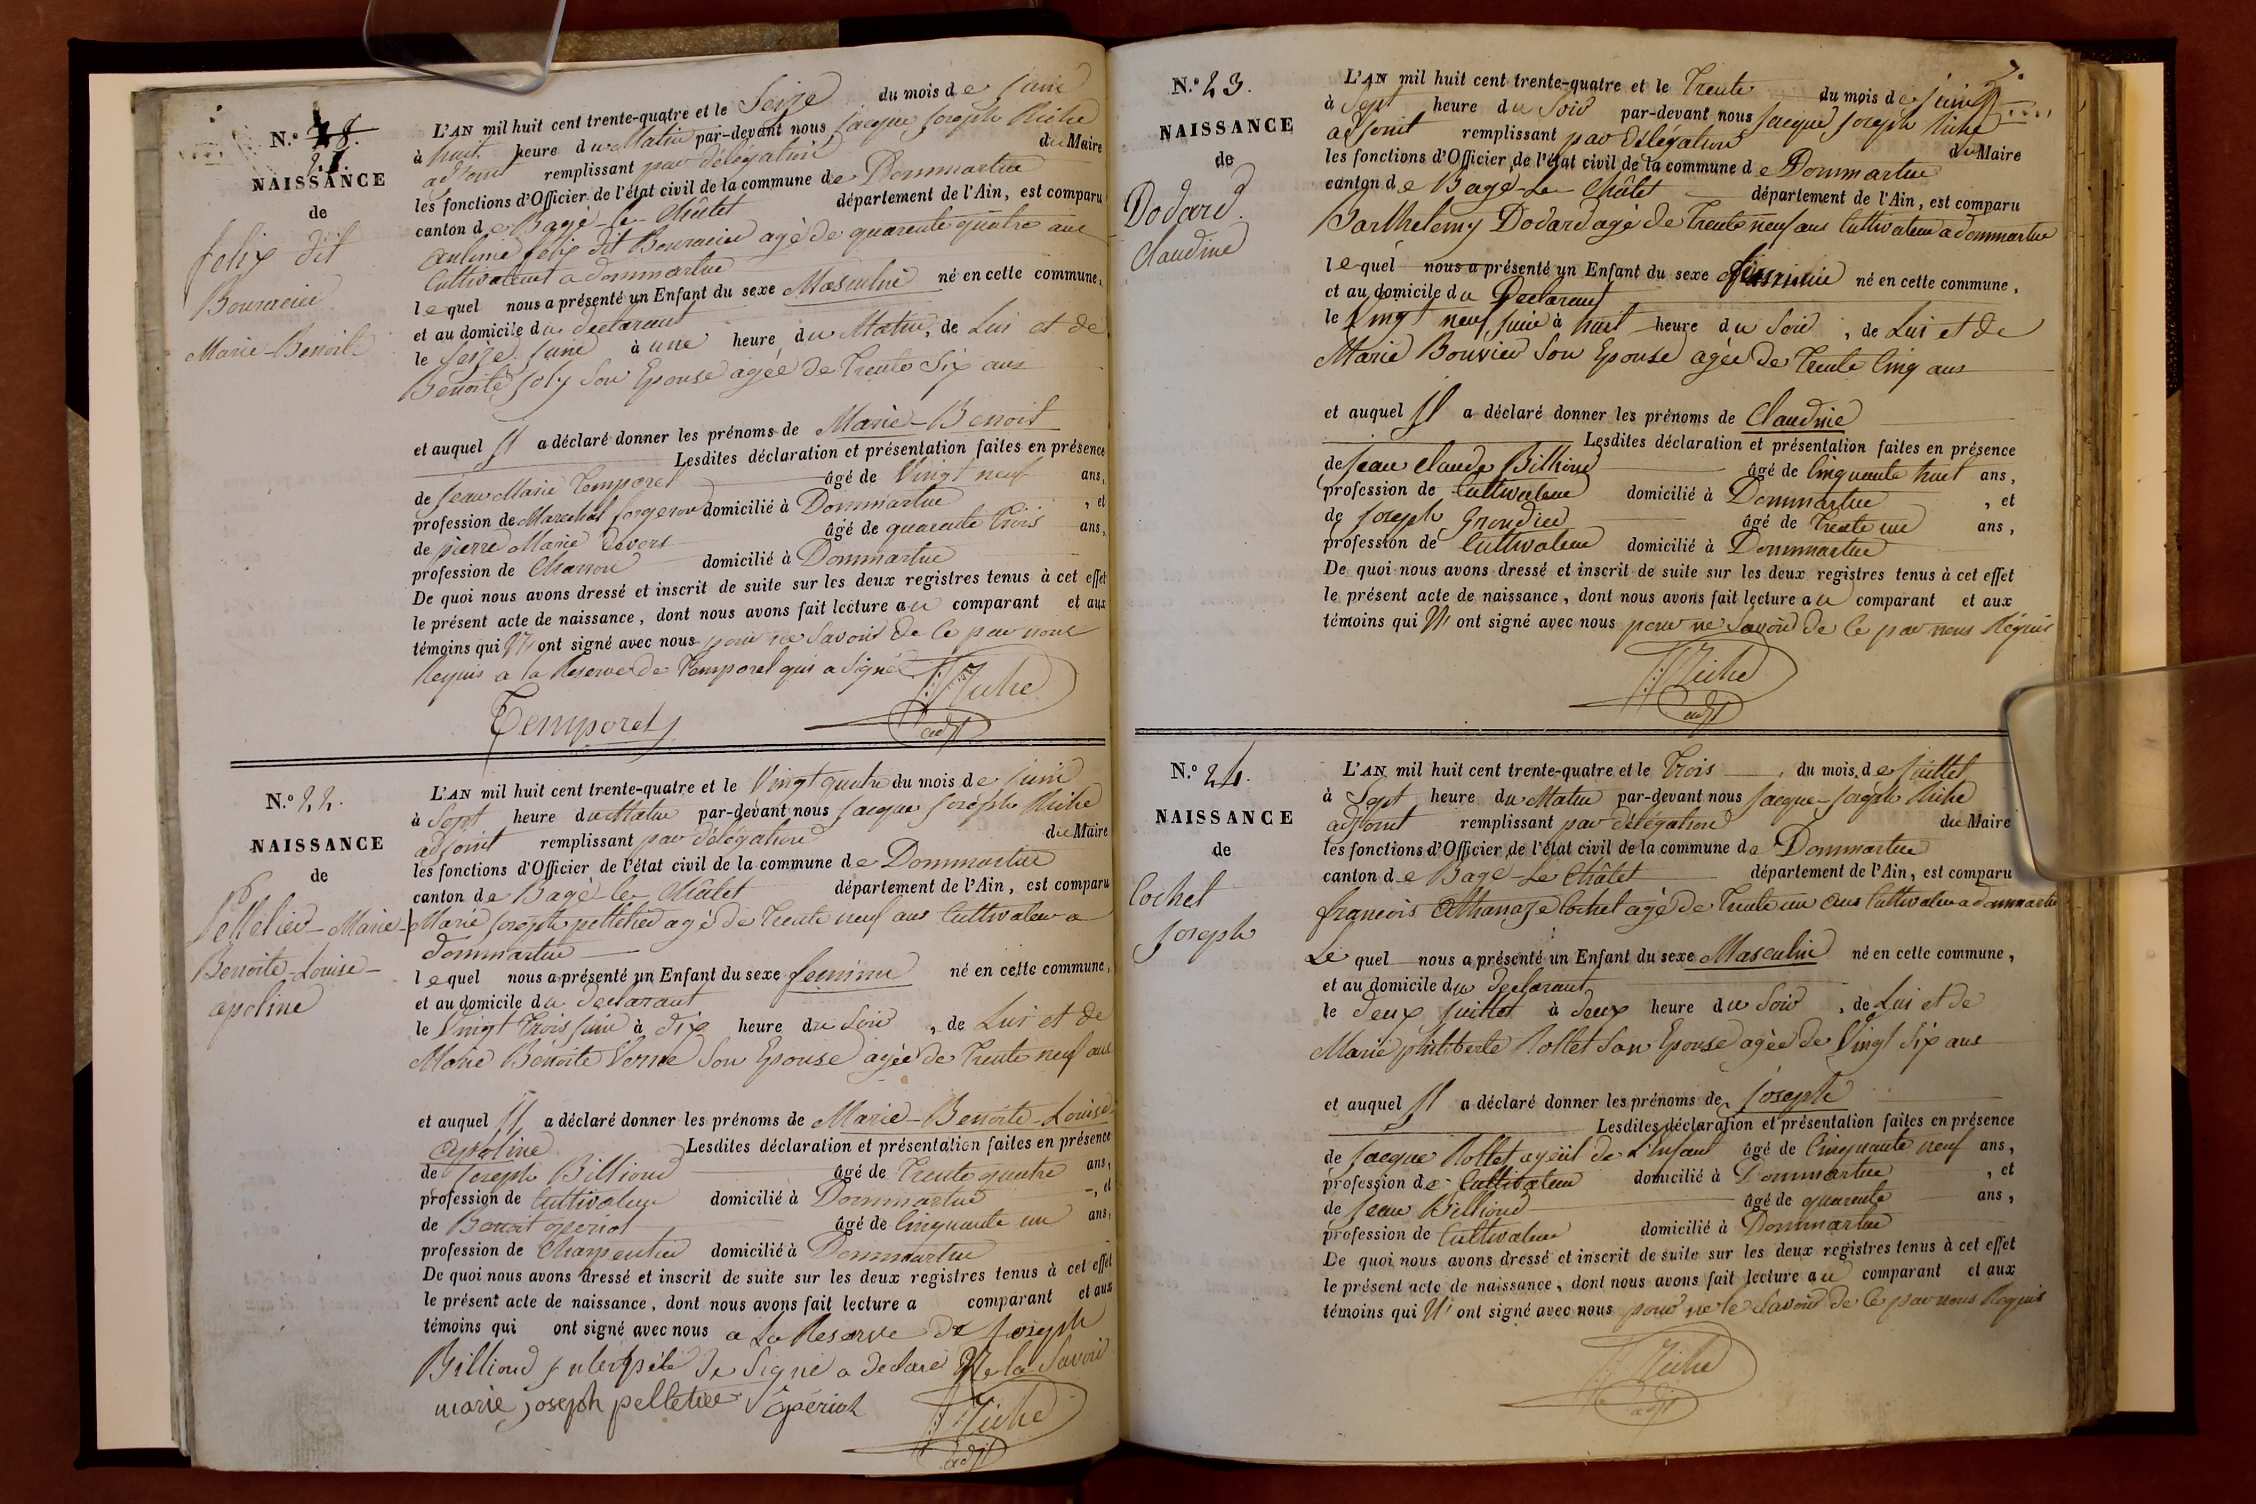 N.º 18.
21.
NAISSANCE
de
felix dit
Bouvacier
Marie-Benoit
L'AN mil huit cent trente-quatre et le Seize du mois de juin
à huit heure du Matin par-devant nous jacque joseph Riche
adjoint remplissant par délégation du Maire
les fonctions d'Officier de l'état civil de la commune de Dommartin
canton de Bagé-le-Châtel département de l'Ain, est comparu
antoine felix dit agé de quarente quatre ans
Cultivateur a dommartin
lequel nous a présenté un Enfant du sexe Masculin né en cette commune,
et au domicile du declarant
le Seize juin à une heure du Matin, de Lui et de
Benoite joly Son Epouse agée de Trente Six ans
et auquel Il a déclaré donner les prénoms de Marie-Benoit
Lesdites déclaration et présentation faites en présence
de jean Marie Temporel âgé de Vingt neuf ans,
profession de Marechal forgeron domicilié à Dommartin, et
de pierre Marie devors âgé de quarente Trois ans,
profession de Charron domicilié à Dommartin
De quoi nous avons dressé et inscrit de suite sur les deux registres tenus à cet effet
le présent acte de naissance, dont nous avons fait lecture au comparant et aux
témoins qui N'ont signé avec nous pour ne Savoir de Ce par nous
Requis a la Reserve de Temporel qui a Signé
Temporel
JJ Riche
adjt
N.º 22.
NAISSANCE
de
Pelletier-Marie-
Benoite-Louise-
apoline
L'AN mil huit cent trente-quatre et le Vingt quatre du mois de juin
à Sept heure du Matin par-devant nous jacque joseph Riche
adjoint remplissant par délégation du Maire
les fonctions d'Officier de l'état civil de la commune de Dommartin
canton de Bagé le-Châtel département de l'Ain, est comparu
Marie joseph pelletier agé de Trente neuf ans Cultivateur a
dommartin
lequel nous a présenté un Enfant du sexe feminin né en cette commune,
et au domicile du declarant
le Vingt Trois juin à dix heure du Soir, de Lui et de
Marie Benoite Vorne Son Epouse agée de Trente neuf ans
et auquel Il a déclaré donner les prénoms de Marie-Benoite-Louise-
apoline Lesdites déclaration et présentation faites en présence
de Joseph Billioud âgé de Trente quatre ans,
profession de Cultivateur domicilié à Dommartin, et
de Benoit operiol âgé de Cinquante un ans,
profession de Charpentier domicilié à Dommartin
De quoi nous avons dressé et inscrit de suite sur les deux registres tenus à cet effet
le présent acte de naissance, dont nous avons fait lecture a comparant et aux
témoins qui ont signé avec nous a La Reserve de Joseph
Billioud de Signé a declaré Ne la Savoir
marie joseph pelletier opériol
JJ Riche
adjt
7.
N.º 23.
NAISSANCE
de
Dodard.
Claudine
L'AN mil huit cent trente-quatre et le Trente du mois de juin
à Sept heure du Soir par-devant nous jacque joseph Riche
adjoint remplissant par délégation du Maire
les fonctions d'Officier de l'état civil de la commune de Dommartin
canton de Bagé-Le-Châtel département de l'Ain, est comparu
Barthelemy Dodard agé de Trente neuf ans Cultivateur a dommartin
lequel nous a présenté un Enfant du sexe feminin né en cette commune,
et au domicile du Declarant
le Vingt neuf juin à huit heure du Soir, de Lui et de
Marie Bouvier Son Epouse agée de Trente Cinq ans
et auquel Il a déclaré donner les prénoms de Claudine
Lesdites déclaration et présentation faites en présence
de Jean Claude Billioud âgé de Cinquante huit ans,
profession de Cultivateur domicilié à Dommartin, et
de joseph Grondier âgé de Trente un ans,
profession de Cultivateur domicilié à Dommartin
De quoi nous avons dressé et inscrit de suite sur les deux registres tenus à cet effet
le présent acte de naissance, dont nous avons fait lecture au comparant et aux
témoins qui N'ont signé avec nous pour ne Savoir de Ce par nous Réquis
JJ Riche
adjt
N.º 24.
NAISSANCE
de
Cochet
joseph
L'AN mil huit cent trente-quatre et le Trois du mois de juillet
à Sept heure du Matin par-devant nous jacque-joseph Riche
adjoint remplissant par délégation du Maire
les fonctions d'Officier de l'état civil de la commune de Dommartin
canton de Bagé-Le Châtel département de l'Ain, est comparu
francois Athanaze Cochet agé de Trente un ans Cultivateur a dommartin
Le quel nous a présenté un Enfant du sexe Masculin né en cette commune,
et au domicile du declarant
le deux juillet à deux heure du Soir, de Lui et de
Marie philiberte Rollet Son Epouse agée de Vingt Six ans
et auquel Il a déclaré donner les prénoms de joseph
Lesdites déclaration et présentation faites en présence
de jacque Rollet ayeul de L'Enfant âgé de Cinquante neuf ans,
profession de Cultivateur domicilié à Dommartin, et
de Jean Billioud âgé de quarente ans,
profession de Cultivateur domicilié à Dommartin
De quoi nous avons dressé et inscrit de suite sur les deux registres tenus à cet effet
le présent acte de naissance, dont nous avons fait lecture au comparant et aux
témoins qui N'ont signé avec nous pour ne le Savoir de Ce par nous Requis
JJ Riche
adjt